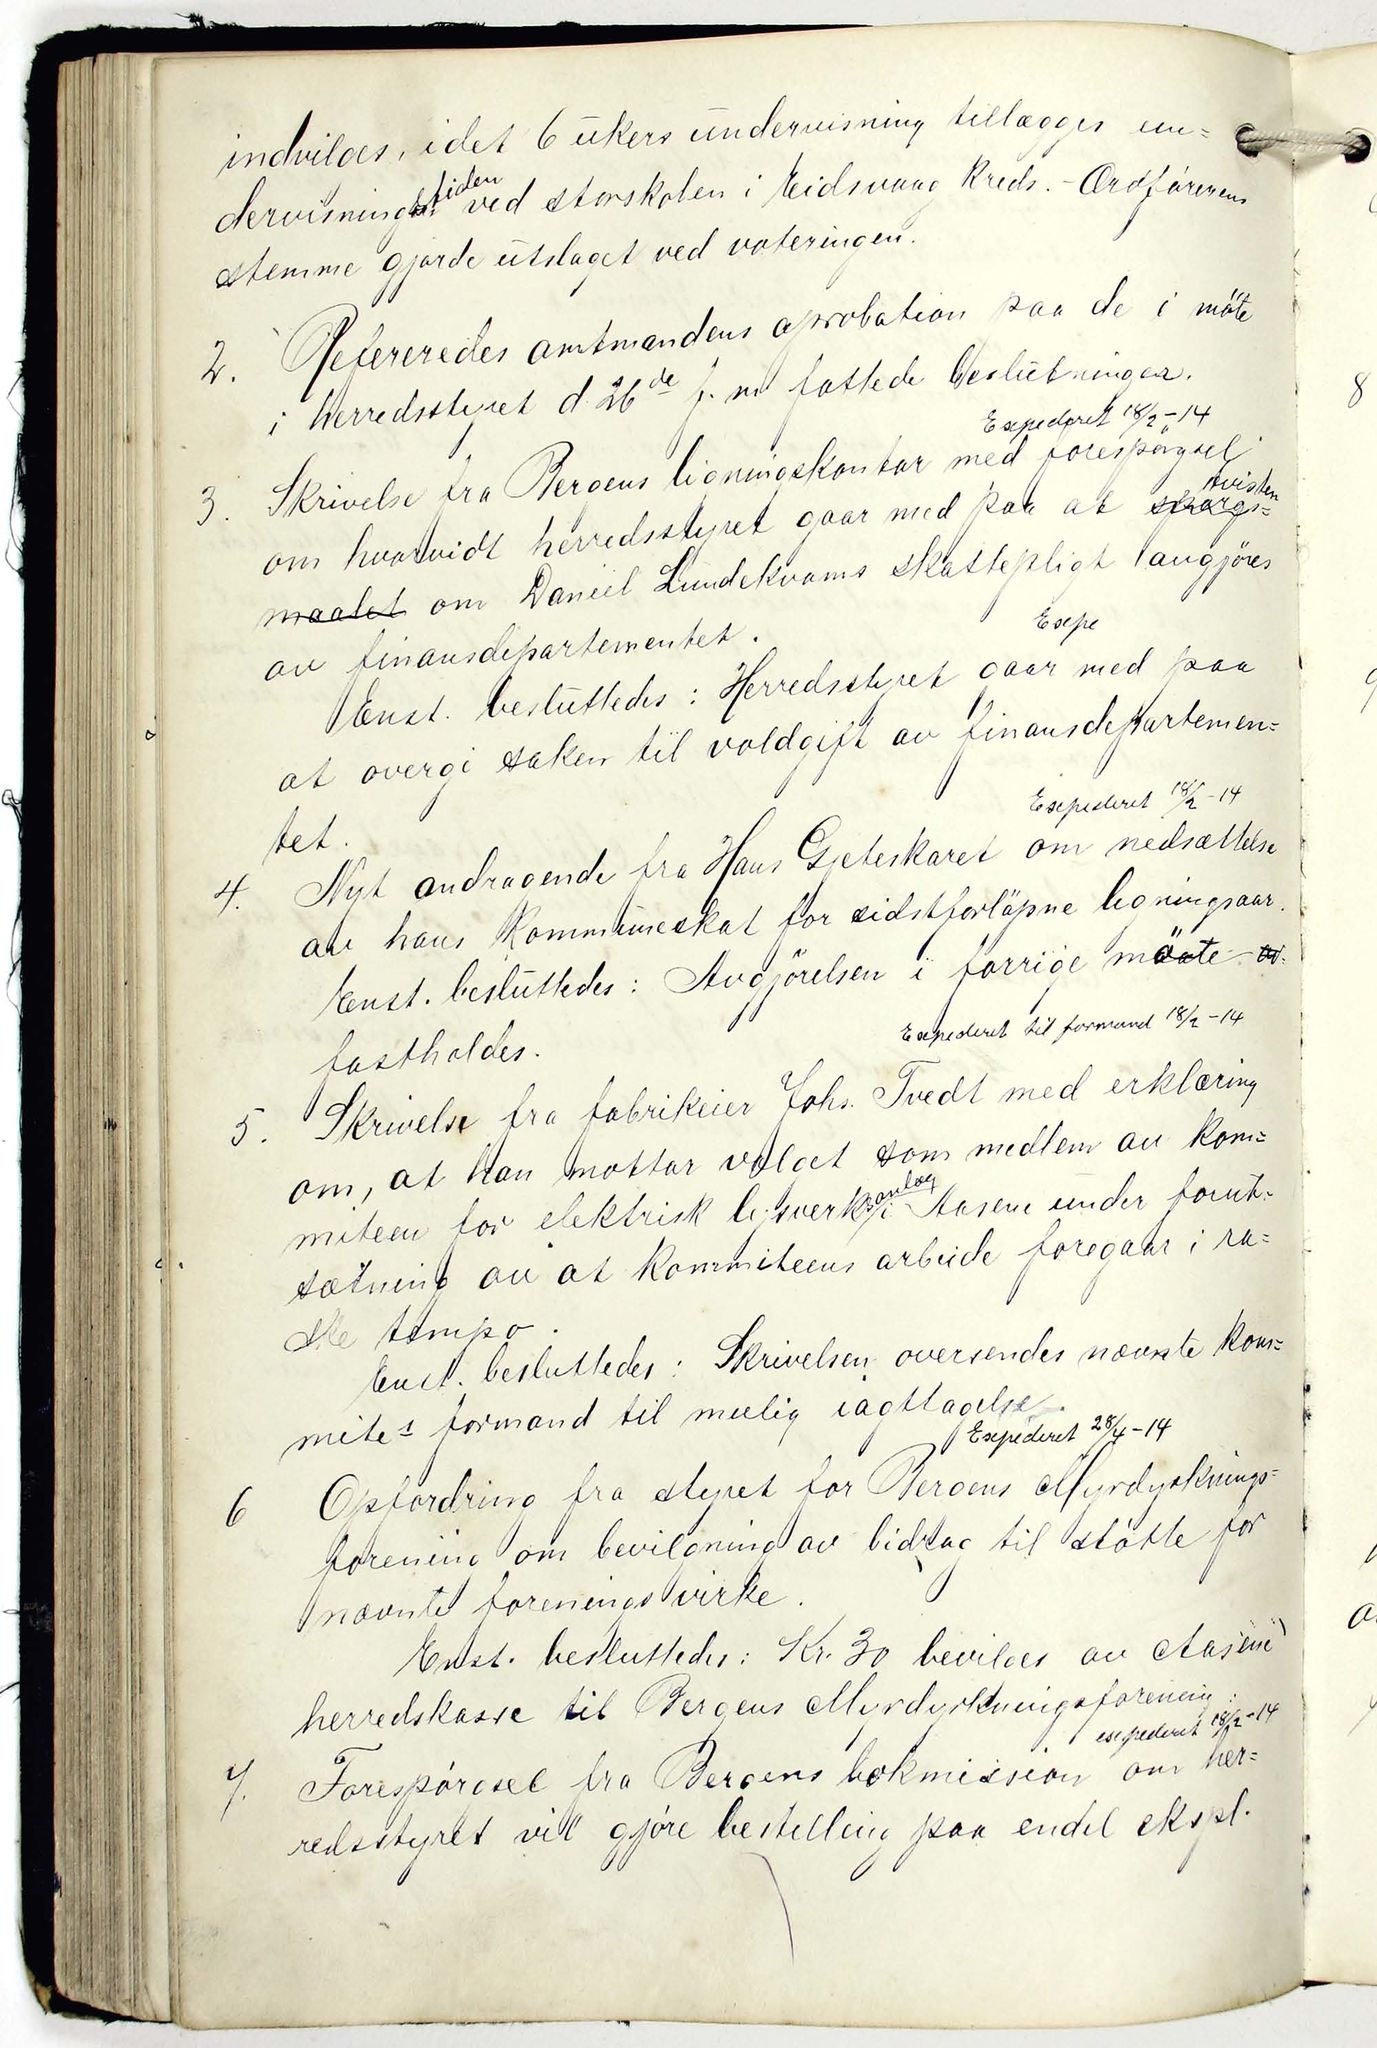 indvilges, idet 6 ukers undervisning tillægges un=
dervisningstiden ved storskolen i Eidsvaag kreds. - Ordførerens
stemme gjorde utslaget ved voteringen.
2. Refereredes amtmandens aprobation paa de i møte
i herredsstyret d. 26de f. m fattede beslutninger.
Expederet 18/2-14
3. Skrivelse fra Bergens ligningskontor med forespørgsel
om hvorvidt herredsstyret gaar med paa at tvisten spørgs=
maalet om Daniel Lundekvams skattepligt avgjøres
av finansdepartementet.
Expe
Enst. besluttedes: Herredsstyret gaar med paa
at overgi saken til voldgift av finansdepartemen=
tet.
Expederet 18/2-14
4. Nyt andragende fra Hans Gjeteskaret om nedsættelse
av hans kommuneskat for sidstforløpne ligningsaar.
Enst. besluttedes: Avgjørelsen i forrige møte
fastholdes.
Expederet til formand 18/2-14
5. Skrivelse fra fabrikeier Johs. Tvedt med erklæring
om, at han mottar valget som medlem av kom=
miteen for elektrisk lysverksanlæg i Aasene under forut=
sætning av at kommiteens arbeide foregaar i ra=
ske tempo.
Enst. besluttedes: Skrivelsen oversendes nævnte kom=
mites formand til mulig iagttagelse.
Expederet 28/4-14
6 Opfordring fra styret for Bergens Myrdyrknings=
forening om bevilgning av bidrag til støtte for
nævnte forenings virke.
Enst. besluttedes: Kr. 30 bevilges av Aasene
herredskasse til Bergens Myrdyrkningsforening.
expederet 18/2-14
7. Forespørgsel fra Bergens bokmission om her=
redsstyret vil gjøre bestilling paa endel ekspl.